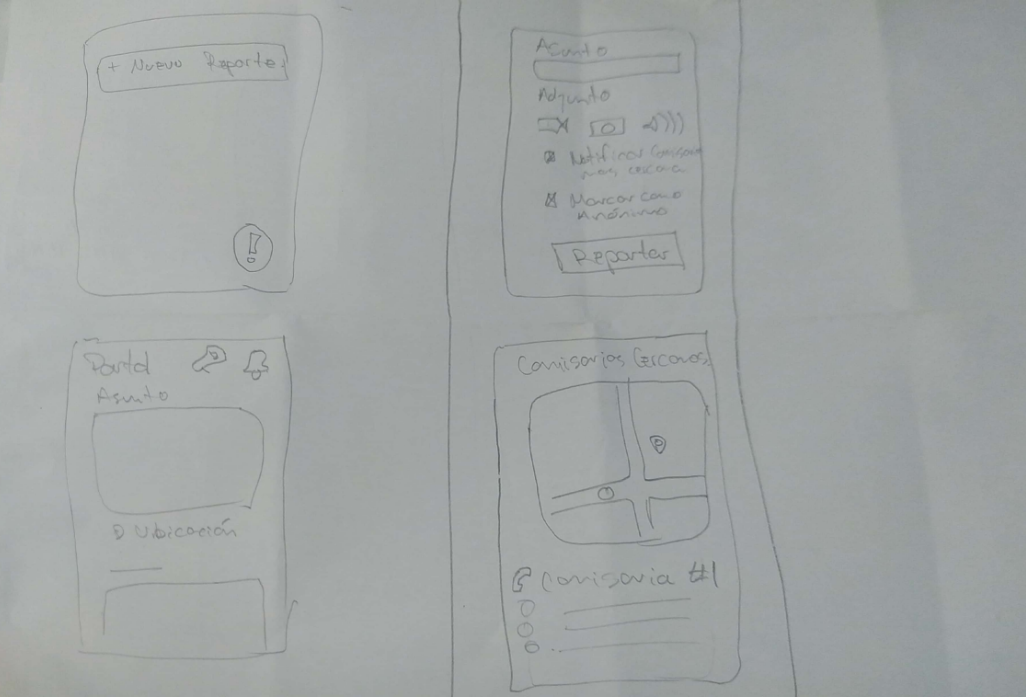 + Nuevo Reporte
!
Asunto
Adjunto
Notificar Comisaria
mas cercana
Marcar como
Anónimo
Reportar
Portal
Asunto
Ubicación
Comisarias Cercanas
Comisaria #1